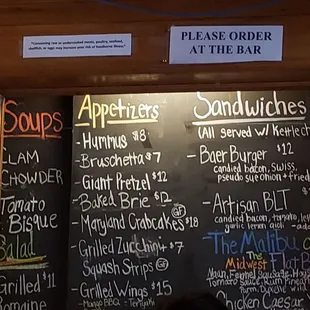 "Consuming raw or undercooked meats, poultry, seafood,
shellfish, or eggs may increase your risk of foodborne illness"
PLEASE ORDER
AT THE BAR
Soups
CLAM
CHOWDER
Tomato
Bisque
Salad
Grilled
Romaine
Appetizers
- Hummus $8
- Bruschetta $7
- Giant Pretzel $12
- Baked Brie $12
- Maryland Crabcakes $18
GF
- Grilled Zucchini + $7
Squash Strips GF
- Grilled Wings $15
Mango BBQ - Teriyaki
Sandwiches
(All served w/ Kettle
- Baer Burger $12
candied bacon, swiss,
pseudo sye onion + fried
- Artisan BLT $
candied bacon, tomato, le
garlic lemon aioli
- The Malibu
The Midwest Flat B
Naan, Fennel Sausage, Ho
Tomato Sauce,
Chicken Caesar